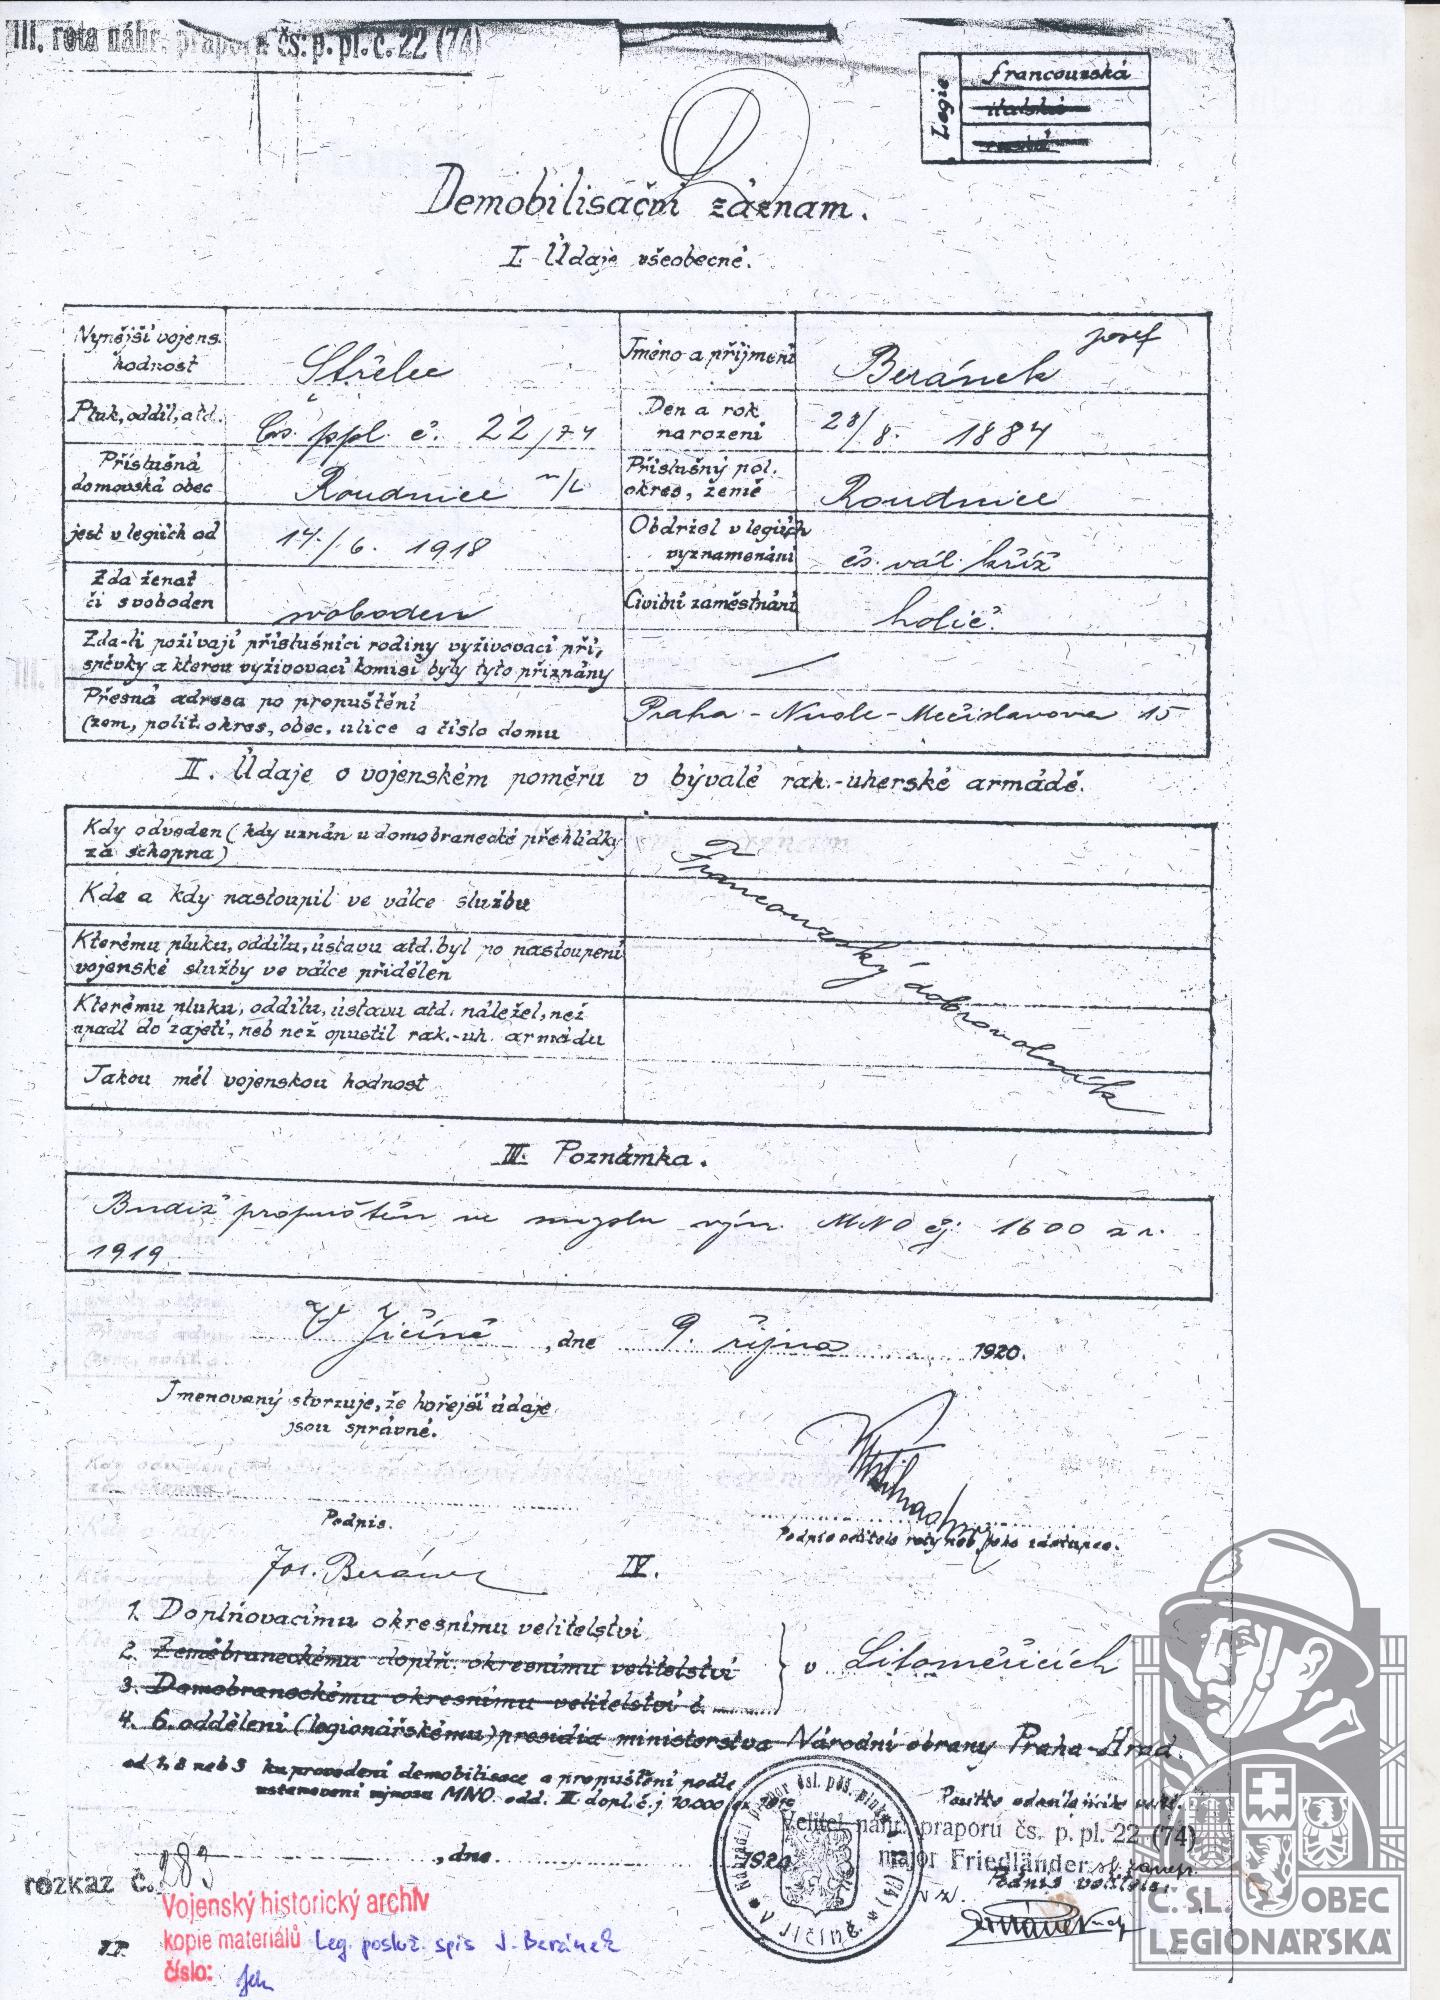 III. rota náhr. praporu čs. p. pl. č. 22 (74)
Legie
francouzská
italská
ruská
Demobilisační záznam.
I. Údaje všeobecné.
Nynější vojens. hodnost
Střelec
Jméno a příjmení
Beránek Josef
Pluk, oddíl, atd.
čs. ppl. č. 22/74
Den a rok narození
28/8. 1884
Příslušná domovská obec
Roudnice n/L
Příslušný pol. okres, země
Roudnice
jest v legiích od
14./6. 1918
Obdržel v legiích vyznamenání
čs. vál. kříž
Zda ženat či svoboden
svoboden
Civilní zaměstnání
holič.
Zda-li požívají příslušníci rodiny vyživovací pří,
spěvky a kterou vyživovací komisí byly tyto přiznány
—
Přesná adresa po propuštění
(zem, polit. okres, obec, ulice a číslo domu
Praha - Nusle - Mečislavova 15
II. Údaje o vojenském poměru v bývalé rak.-uherské armádě.
Kdy odveden (kdy uznán u domobranecké přehlídky
za schopna)
Kde a kdy nastoupil ve válce službu
Kterému pluku, oddílu, ústavu atd. byl po nastoupení
vojenské služby ve válce přidělen
Kterému pluku, oddílu, ústavu atd. náležel, než
upadl do zajetí, neb než opustil rak.-uh. armádu
Jakou měl vojenskou hodnost
Francouzský dobrovolník
III. Poznámka.
Budiž propuštěn ve smyslu výn. MNO čj. 1600 z r.
1919
V Jičíně, dne 9. října 1920.
Jmenovaný stvrzuje, že hořejší údaje
jsou správné.
Podpis.
Podpis velitele roty neb jeho zástupce.
Jos. Beránek
IV.
1. Doplňovacímu okresnímu velitelství
2. Zeměbraneckému doplň. okresnímu velitelství
3. Domobraneckému okresnímu velitelství č.
v Litoměřicích
4. 6. oddělení (legionářskému) presidia ministerstva Národní obrany Praha-Hrad.
od 1, 2 neb 3 ku provedení demobilisace a propuštění podle
ustanovení výnosu MNO. odd. II dopl. č.j. 70.000 ex 1919
, dne 1920
Náhradní prapor čsl. pěš. pluku 22 (74) v Jičíně
Velitel náhr. praporu čs. p. pl. 22 (74)
major Friedländer
v z.
Podpis velitele.
rozkaz č. 283
Vojenský historický archiv
kopie materiálů Leg. posluž. spis J. Beránek
číslo:
Č. SL. OBEC
LEGIONÁŘSKÁ